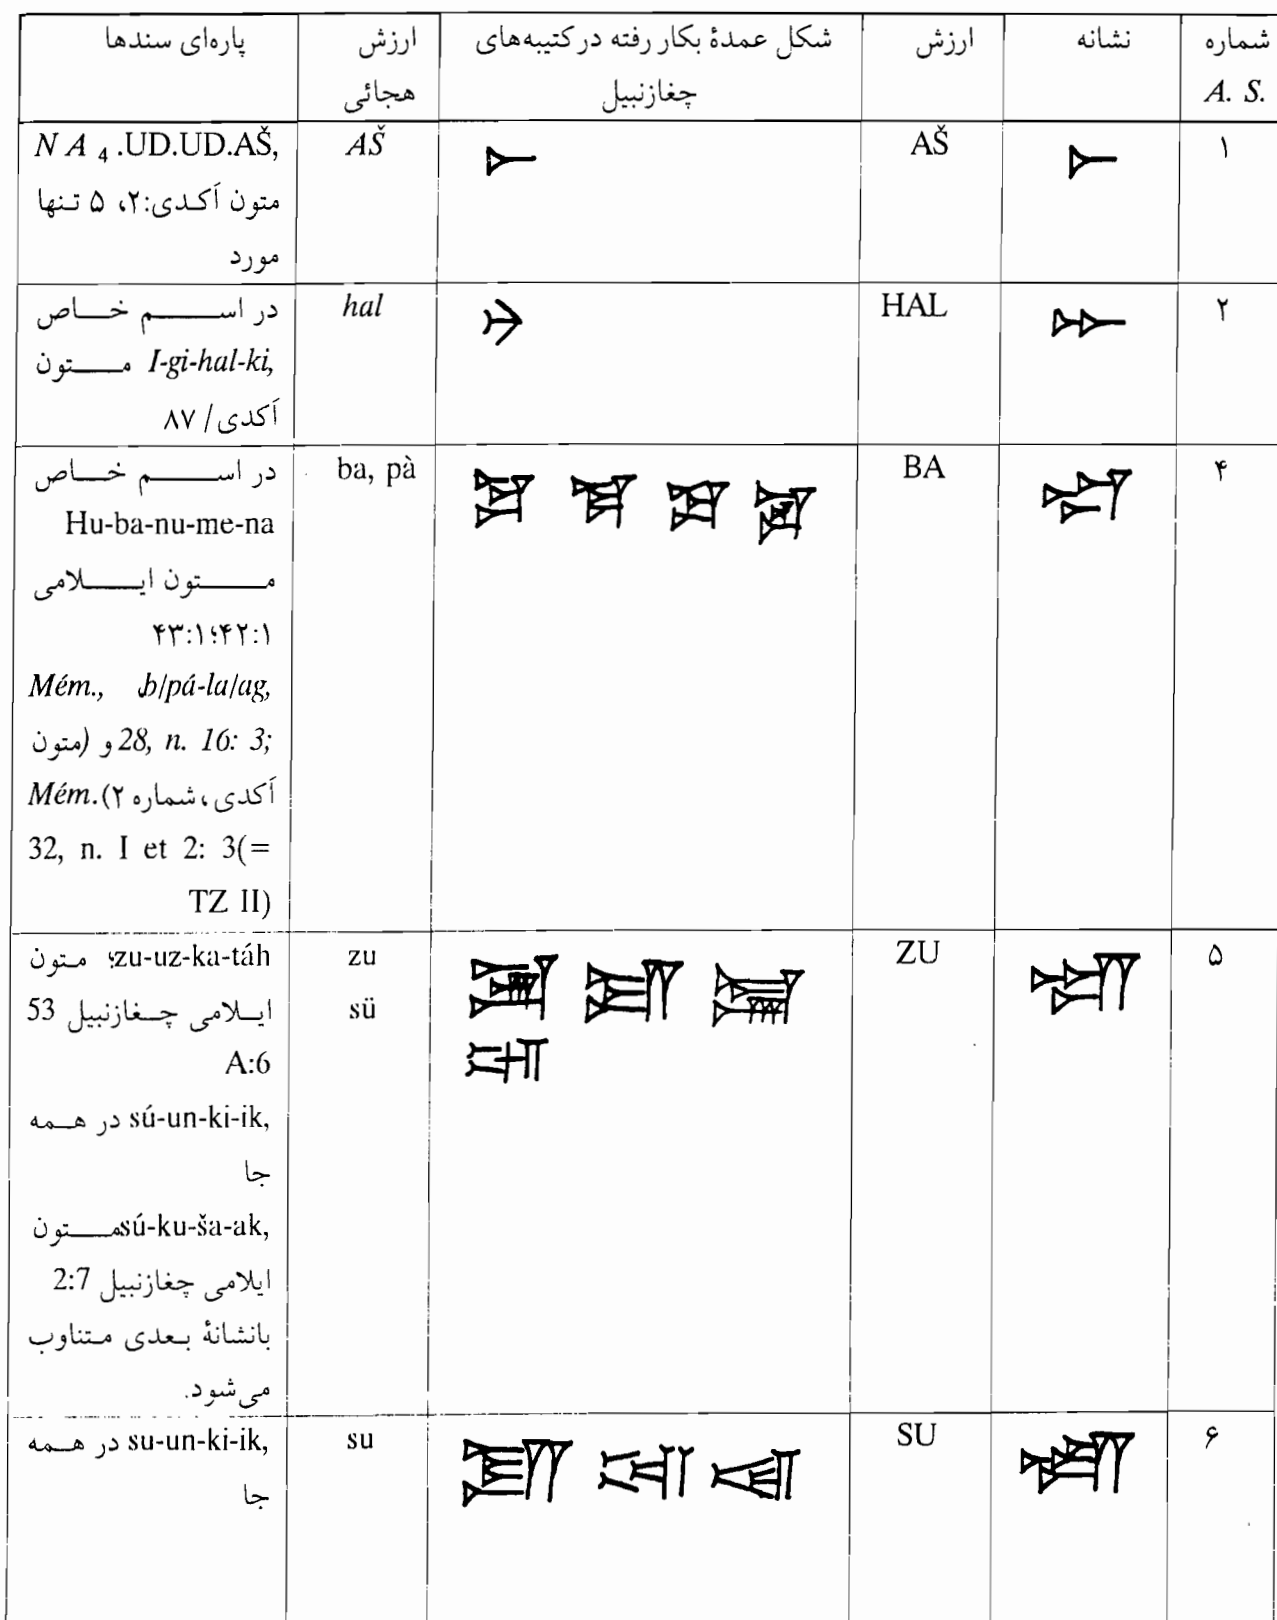 شماره A. S.
نشانه
ارزش
شکل عمدهٔ بکار رفته در کتیبه‌های چغازنبیل
ارزش هجائی
پاره‌ای سندها
۱
AŠ
AŠ
NA₄.UD.UD.AŠ,
متون آکدی:۲، ۵ تنها
مورد
۲
HAL
hal
در اسم خاص
I-gi-hal-ki, متون
آکدی/ ۸۷
۴
BA
ba, pà
در اسم خاص
Hu-ba-nu-me-na
متون ایلامی
۴۲:۱؛۴۳:۱
Mém., b/pá-la/ag,
28, n. 16: 3; و (متون
آکدی، شماره ۲).Mém
32, n. I et 2: 3(=
TZ II)
۵
ZU
zu
sü
zu-uz-ka-táh؛ متون
ایلامی چغازنبیل 53
A:6
sú-un-ki-ik, در همه
جا
sú-ku-ša-ak, متون
ایلامی چغازنبیل 2:7
بانشانهٔ بعدی متناوب
می‌شود.
۶
SU
su
su-un-ki-ik, در همه
جا